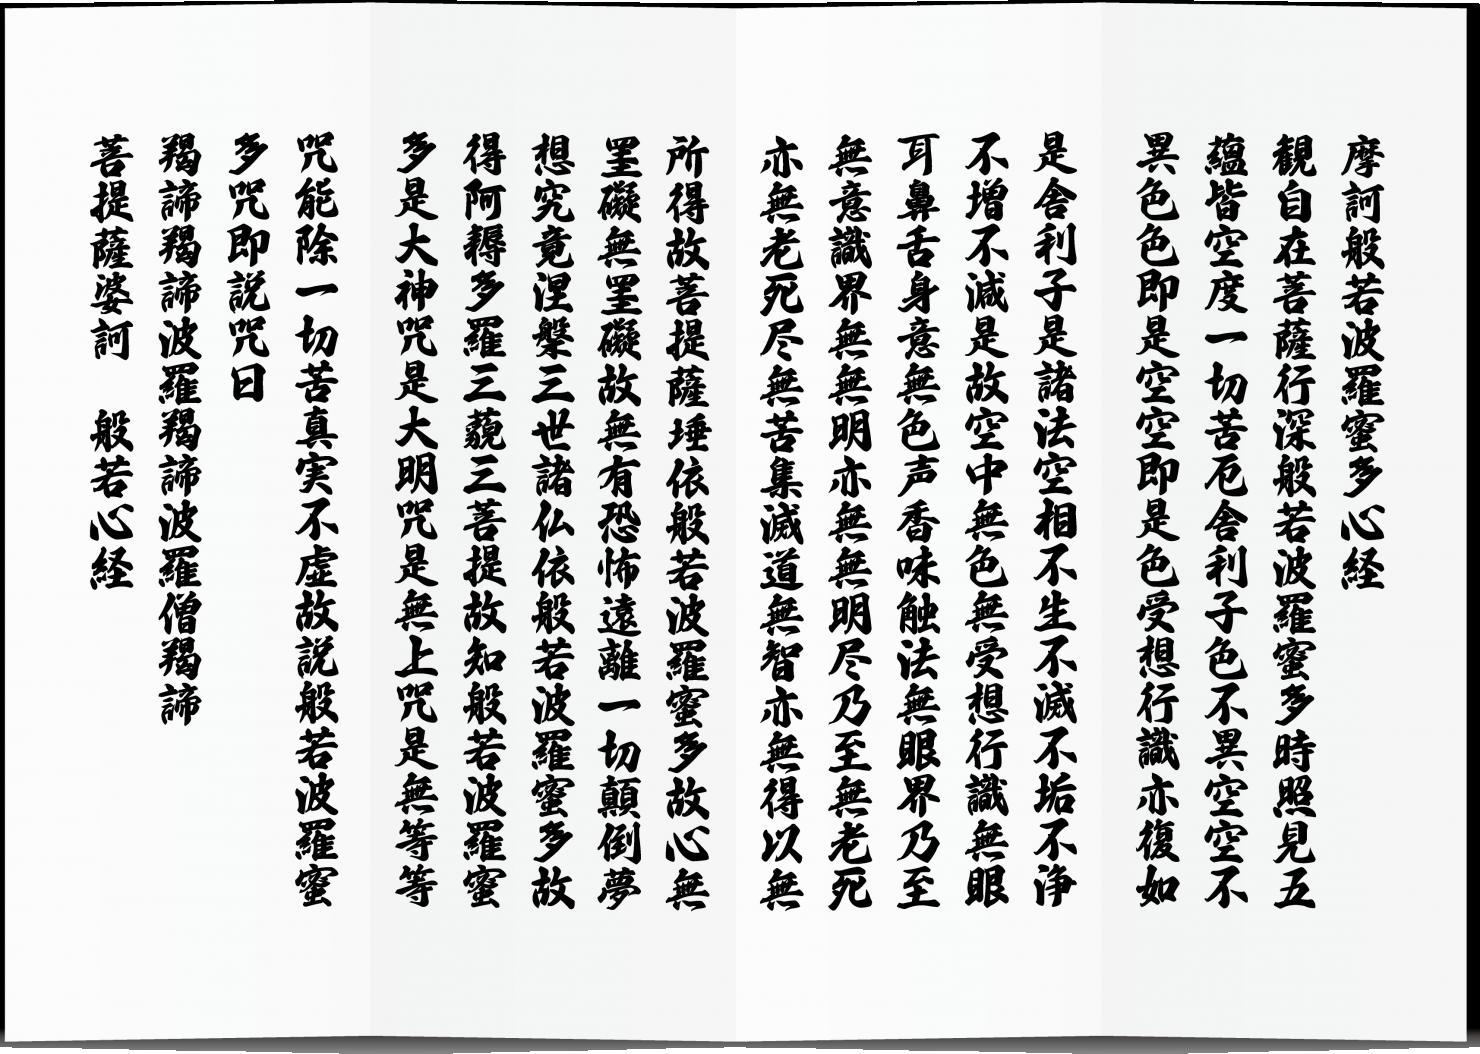 摩訶般若波羅蜜多心経
観自在菩薩行深般若波羅蜜多時照見五
蘊皆空度一切苦厄舎利子色不異空空不
異色色即是空空即是色受想行識亦復如
是舎利子是諸法空相不生不滅不垢不浄
不増不減是故空中無色無受想行識無眼
耳鼻舌身意無色声香味触法無眼界乃至
無意識界無無明亦無無明尽乃至無老死
亦無老死尽無苦集滅道無智亦無得以無
所得故菩提薩埵依般若波羅蜜多故心無
罣礙無罣礙故無有恐怖遠離一切顛倒夢
想究竟涅槃三世諸仏依般若波羅蜜多故
得阿耨多羅三藐三菩提故知般若波羅蜜
多是大神咒是大明咒是無上咒是無等等
咒能除一切苦真実不虚故説般若波羅蜜
多咒即説咒曰
羯諦羯諦波羅羯諦波羅僧羯諦
菩提薩婆訶　般若心経